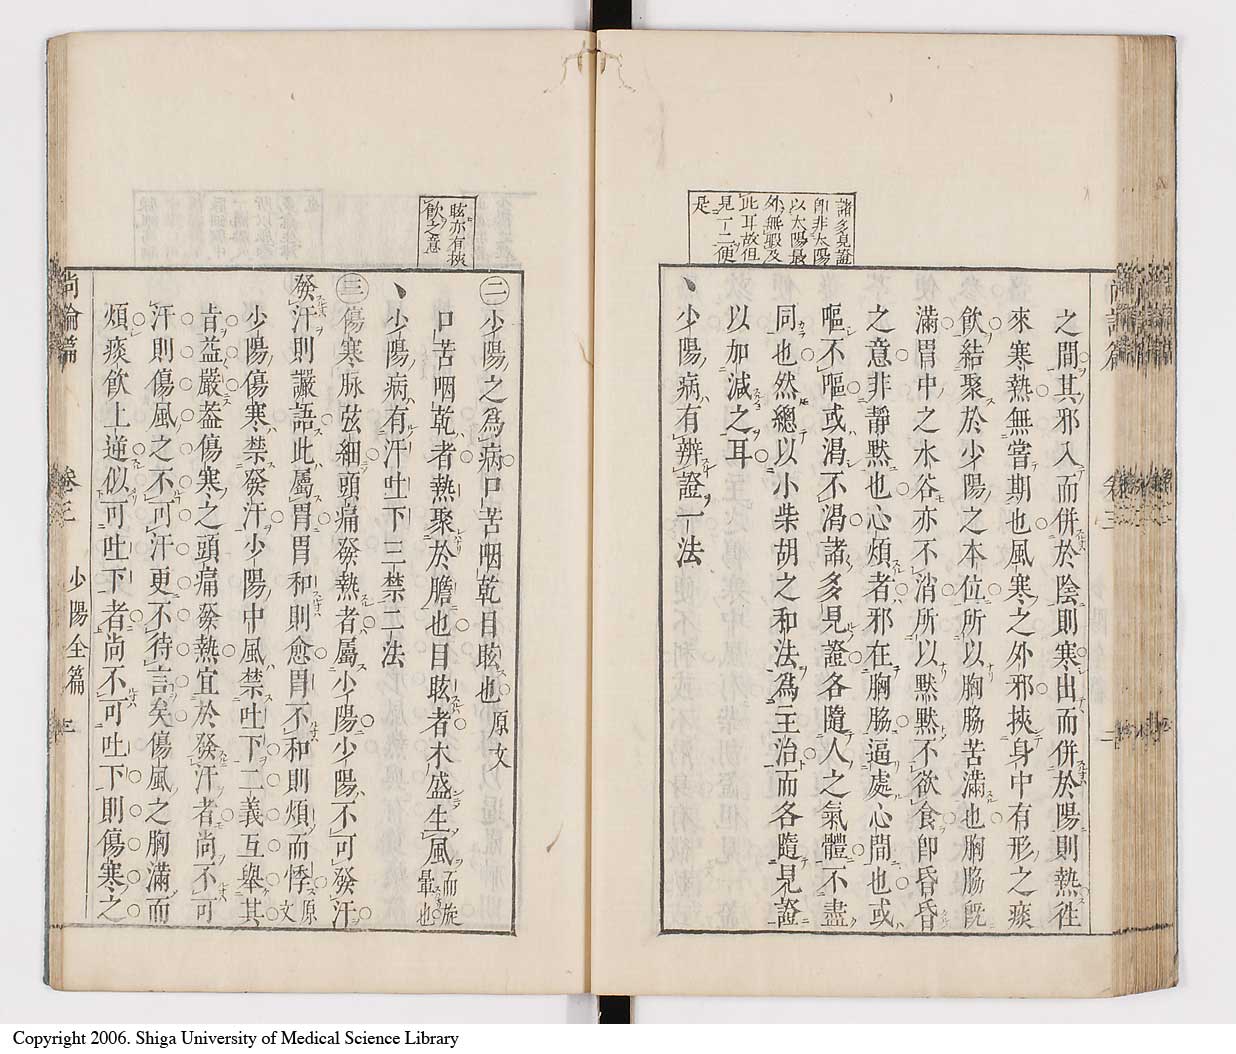 諸多見證
即非太陽
以太陽最
外無暇及
此耳故但
見一二便
是
之間其邪入而併於陰則寒出而併於陽則熱徃
來寒熱無嘗期也風寒之外邪挾身中有形之痰
飲結聚於少陽之本位所以胸脇苦滿也胸脇既
滿胃中之水谷亦不消所以黙黙不欲食即昏昏
之意非靜黙也心煩者邪在胸脇逼處心間也或
嘔不嘔或渴不渴諸多見證各隨人之氣體不盡
同也然總以小柴胡之和法為主治而各隨見證
以加減之耳
少陽病有辨證一法
眩亦有挾
飲之意
㊁少陽之為病口苦咽乾目眩也原文
口苦咽乾者熱聚於膽也目眩者木盛生風而旋
暈也
少陽病有汗吐下三禁二法
㊂傷寒脉弦細頭痛發熱者屬少陽少陽不可發汗
發汗則讝語此屬胃胃和則愈胃不和則煩而悸原文
少陽傷寒禁發汗少陽中風禁吐下二義互舉其
旨益嚴葢傷寒之頭痛發熱宜於發汗者尚不可
汗則傷風之不可汗更不待言矣傷風之胸滿而
煩痰飲上逆似可吐下者尚不可吐下則傷寒之
尚論篇 卷三 少陽全篇 三
Copyright 2006. Shiga University of Medical Science Library